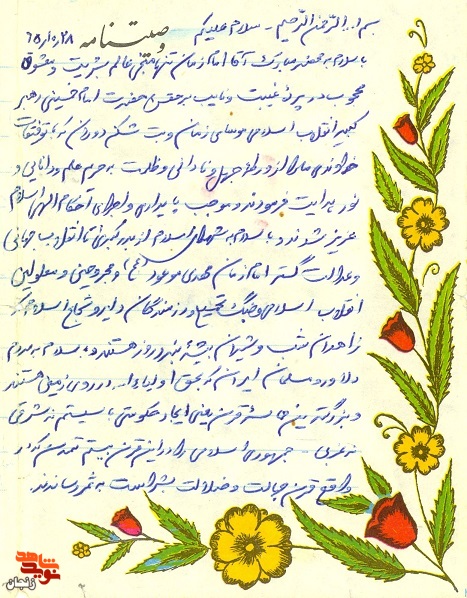 بسم الله الرحمن الرحیم - سلام علیکم
وصیتنامه ۶۵/۱۰/۲۸
با سلام به محضر مبارک آقا امام زمان تنها منجی عالم بشریت و معشوق
محجوب در پرده غیبت و نایب بر حقش حضرت امام خمینی رهبر
کبیر انقلاب اسلامی موسای زمان و بت شکن دوران که با توفیقات
خداوندی ما را از ورطه جهل و نادانی و ظلمت به حرم علم و دانایی و
نور هدایت فرمودند و موجب پایداری و اجرای احکام الهی اسلام
عزیز شدند و با سلام به شهدای اسلام از صدر گیتی تا انقلاب جهانی
و عدالت گستر امام زمان مهدی موعود (عج) و مجروحین و معلولین
انقلاب اسلامی و جنگ و رزمندگان دلیر و شجاع اسلام که
زاهدان شب و شیران بیشه نبرد روز هستند و سلام به مردم
دلاور و مسلمان ایران که بحق اولیاء الله در روی زمین هستند
و بزرگترین قرن یعنی ایجاد حکومتی با سیستم نه شرقی
نه غربی - جمهوری اسلامی را در این قرن بیستم تمدن که در
واقع قرن جهالت و ضلالت بشر است به ثمر رساندند
شاهد
نوید
زنجان